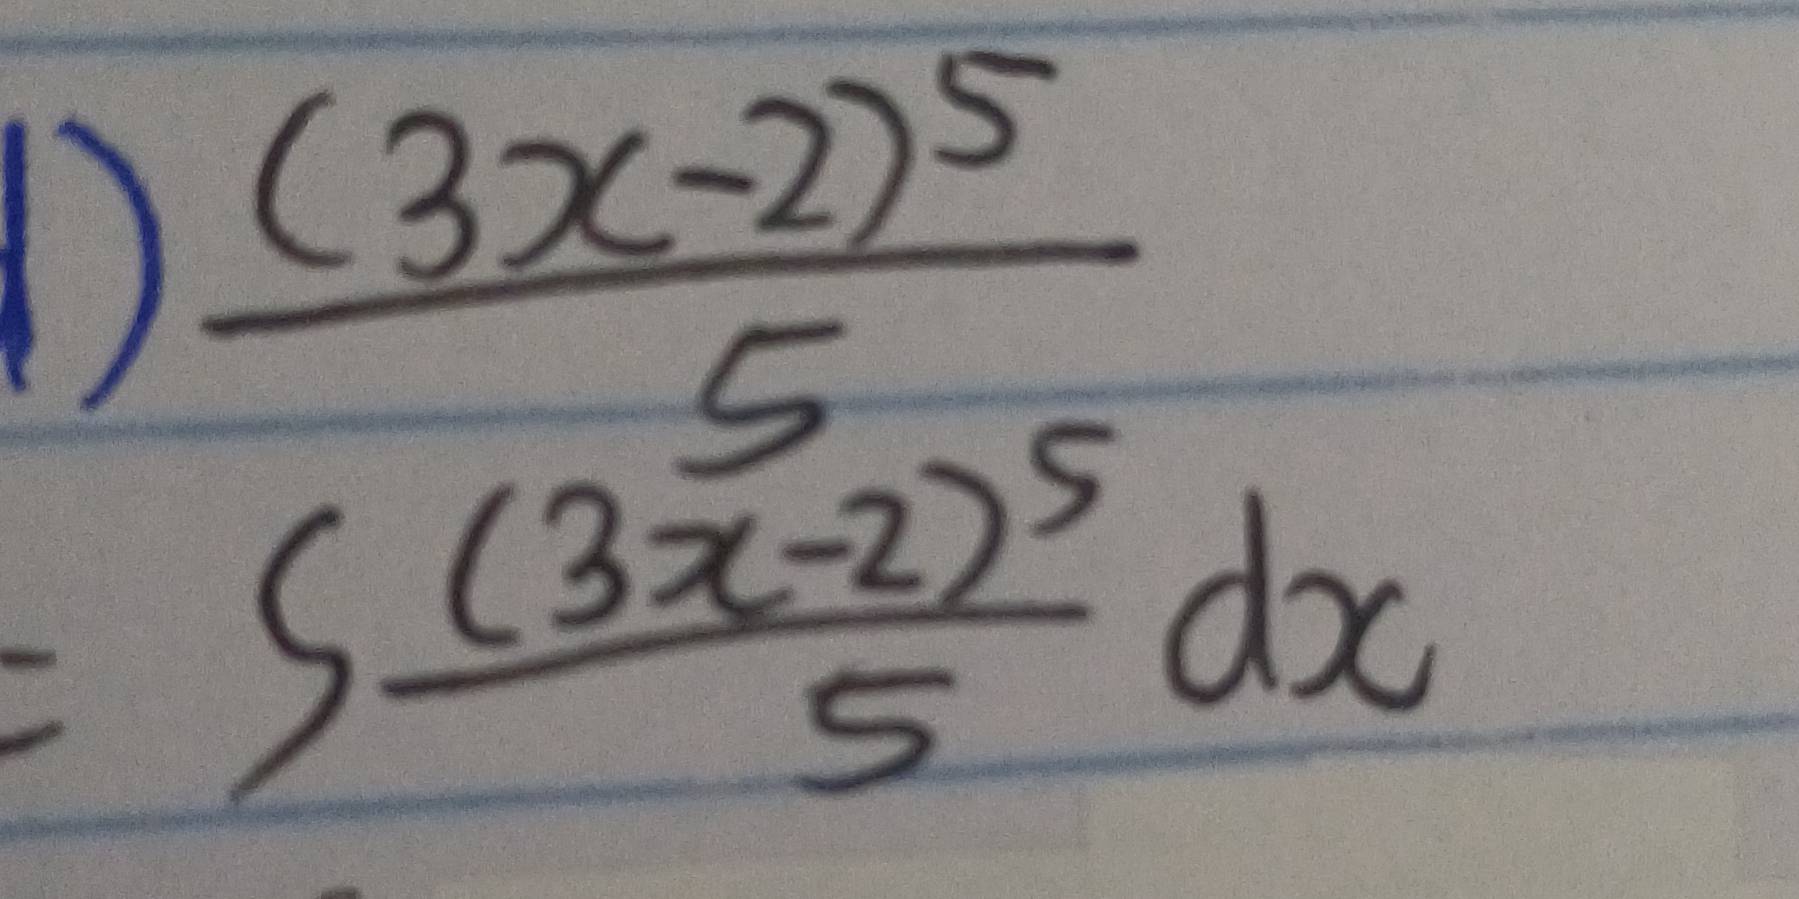 d) (3x-2)^5 / 5
= ∫ (3x-2)^5 / 5 dx